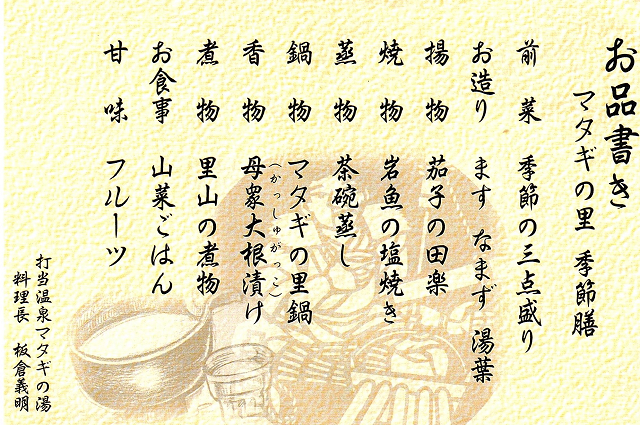 お品書き
マタギの里 季節膳
前菜 季節の三点盛り
お造り ます なまず 湯葉
揚物 茄子の田楽
焼物 岩魚の塩焼き
蒸物 茶碗蒸し
鍋物 マタギの里鍋
香物 母衆大根漬け
(かっしゅがっこ)
煮物 里山の煮物
お食事 山菜ごはん
甘味 フルーツ
打当温泉マタギの湯
料理長 板倉義明